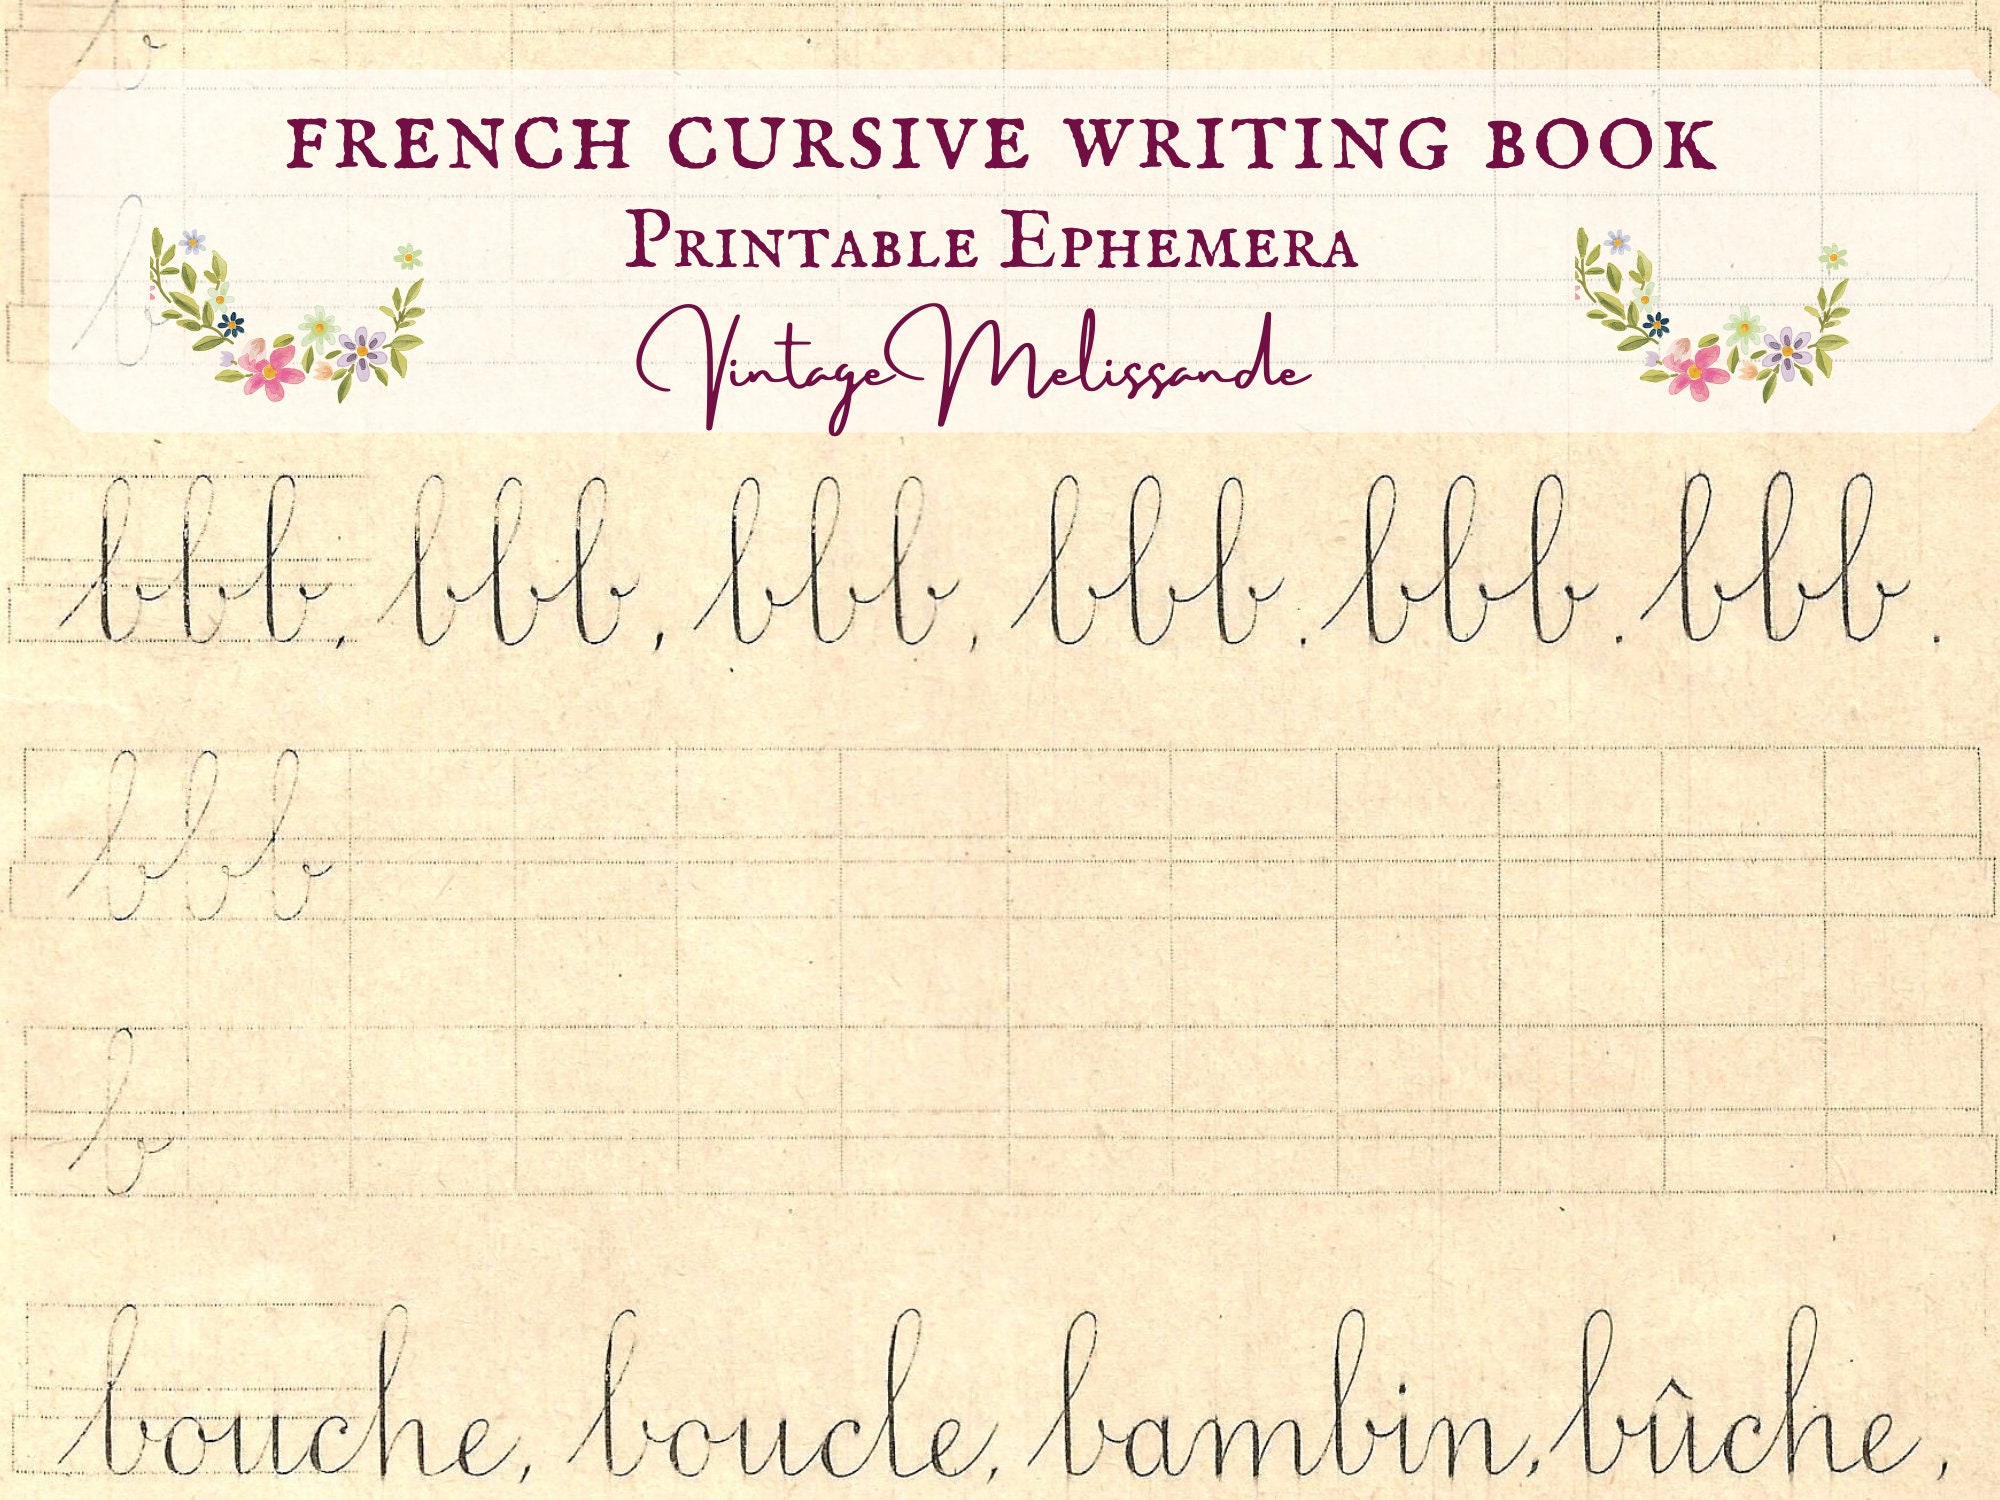 b
FRENCH CURSIVE WRITING BOOK
PRINTABLE EPHEMERA
b
VintageMelissande
bbb, bbb, bbb, bbb. bbb. bbb.
bbb
b
bouche, boucle, bambin, bûche,